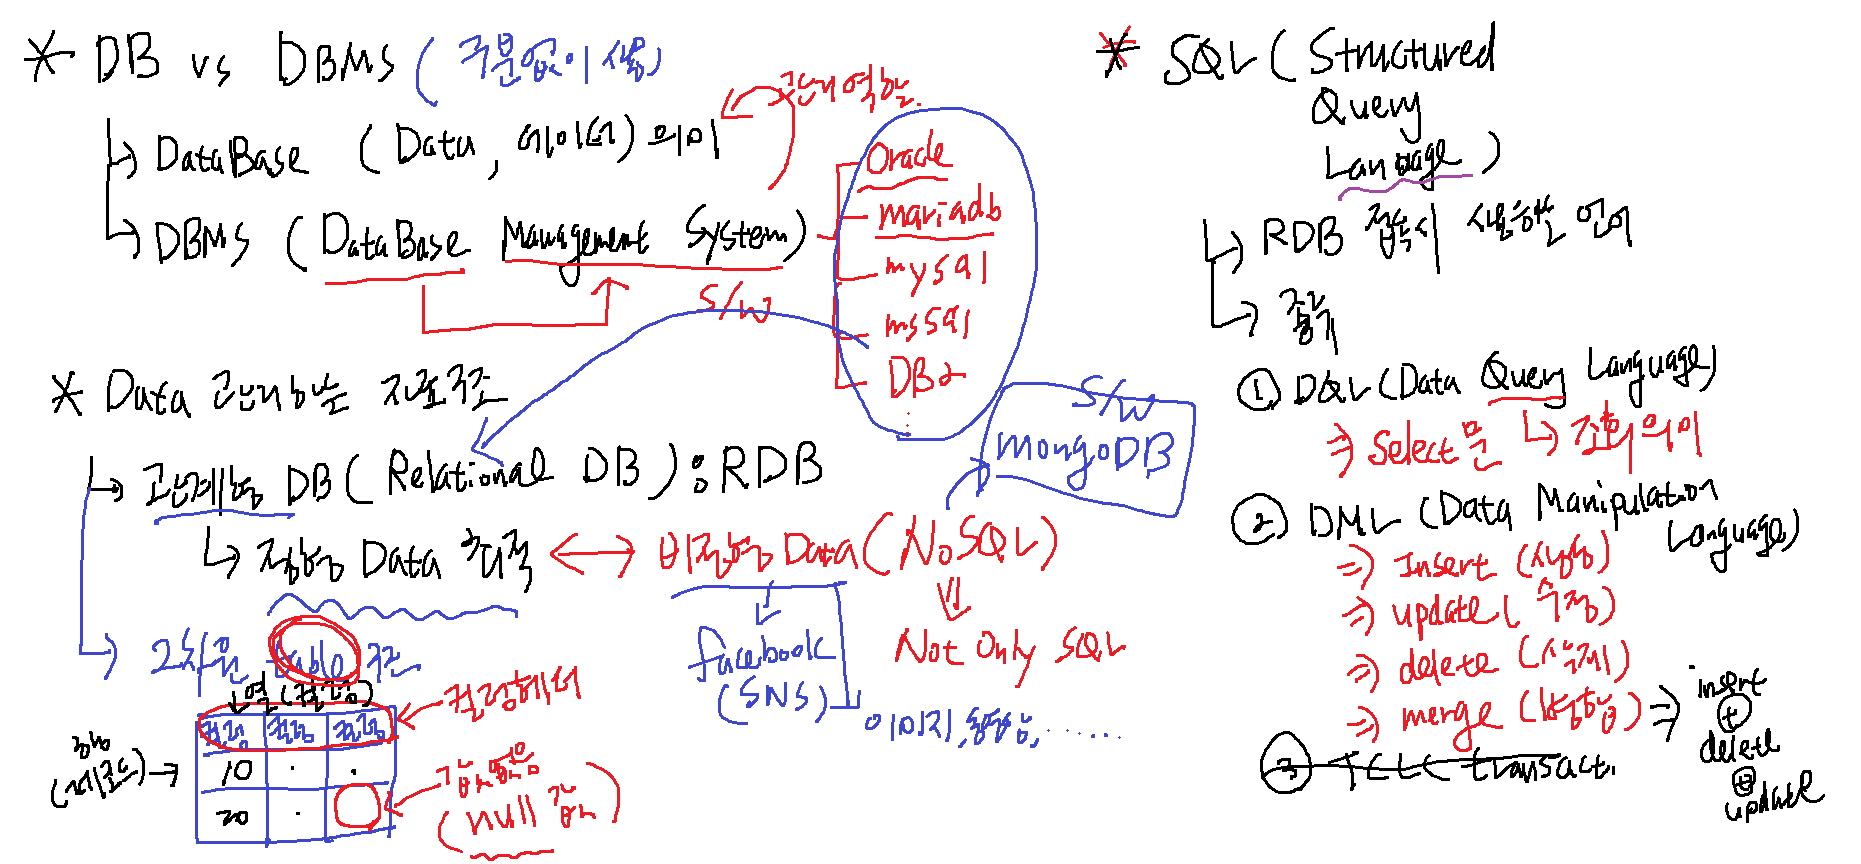 * DB vs DBMS (구분없이 사용)
관리역할.
↳ DataBase (Data, 데이터) 의미
↳ DBMS (DataBase Management System)
S/W
Oracle
mariadb
mysql
mssql
DB2
S/W
mongoDB
* Data 관리하는 자료구조
↳ 관계형 DB (Relational DB) : RDB
↳ 정형 Data 최적 ↔ 비정형 Data (NoSQL)
⇒ Not Only SQL
facebook
(SNS)
이미지, 동영상, ......
→ 2차원 table 구조
열 (컬럼)
컬럼 컬럼 컬럼
← 컬럼헤더
행
(레코드) →
10 . .
20 .
← 값없음
(null 값)
* SQL (Structured
Query
Language)
↳ RDB 접속시 사용하는 언어
↳ 종류
① DQL (Data Query Language)
⇒ Select 문 ↳ 조회 의미
② DML (Data Manipulation
Language)
⇒ Insert (저장)
⇒ update (수정)
⇒ delete (삭제)
⇒ merge (병합) ⇒
insert
+
delete
+
update
③ TCL ( transacti